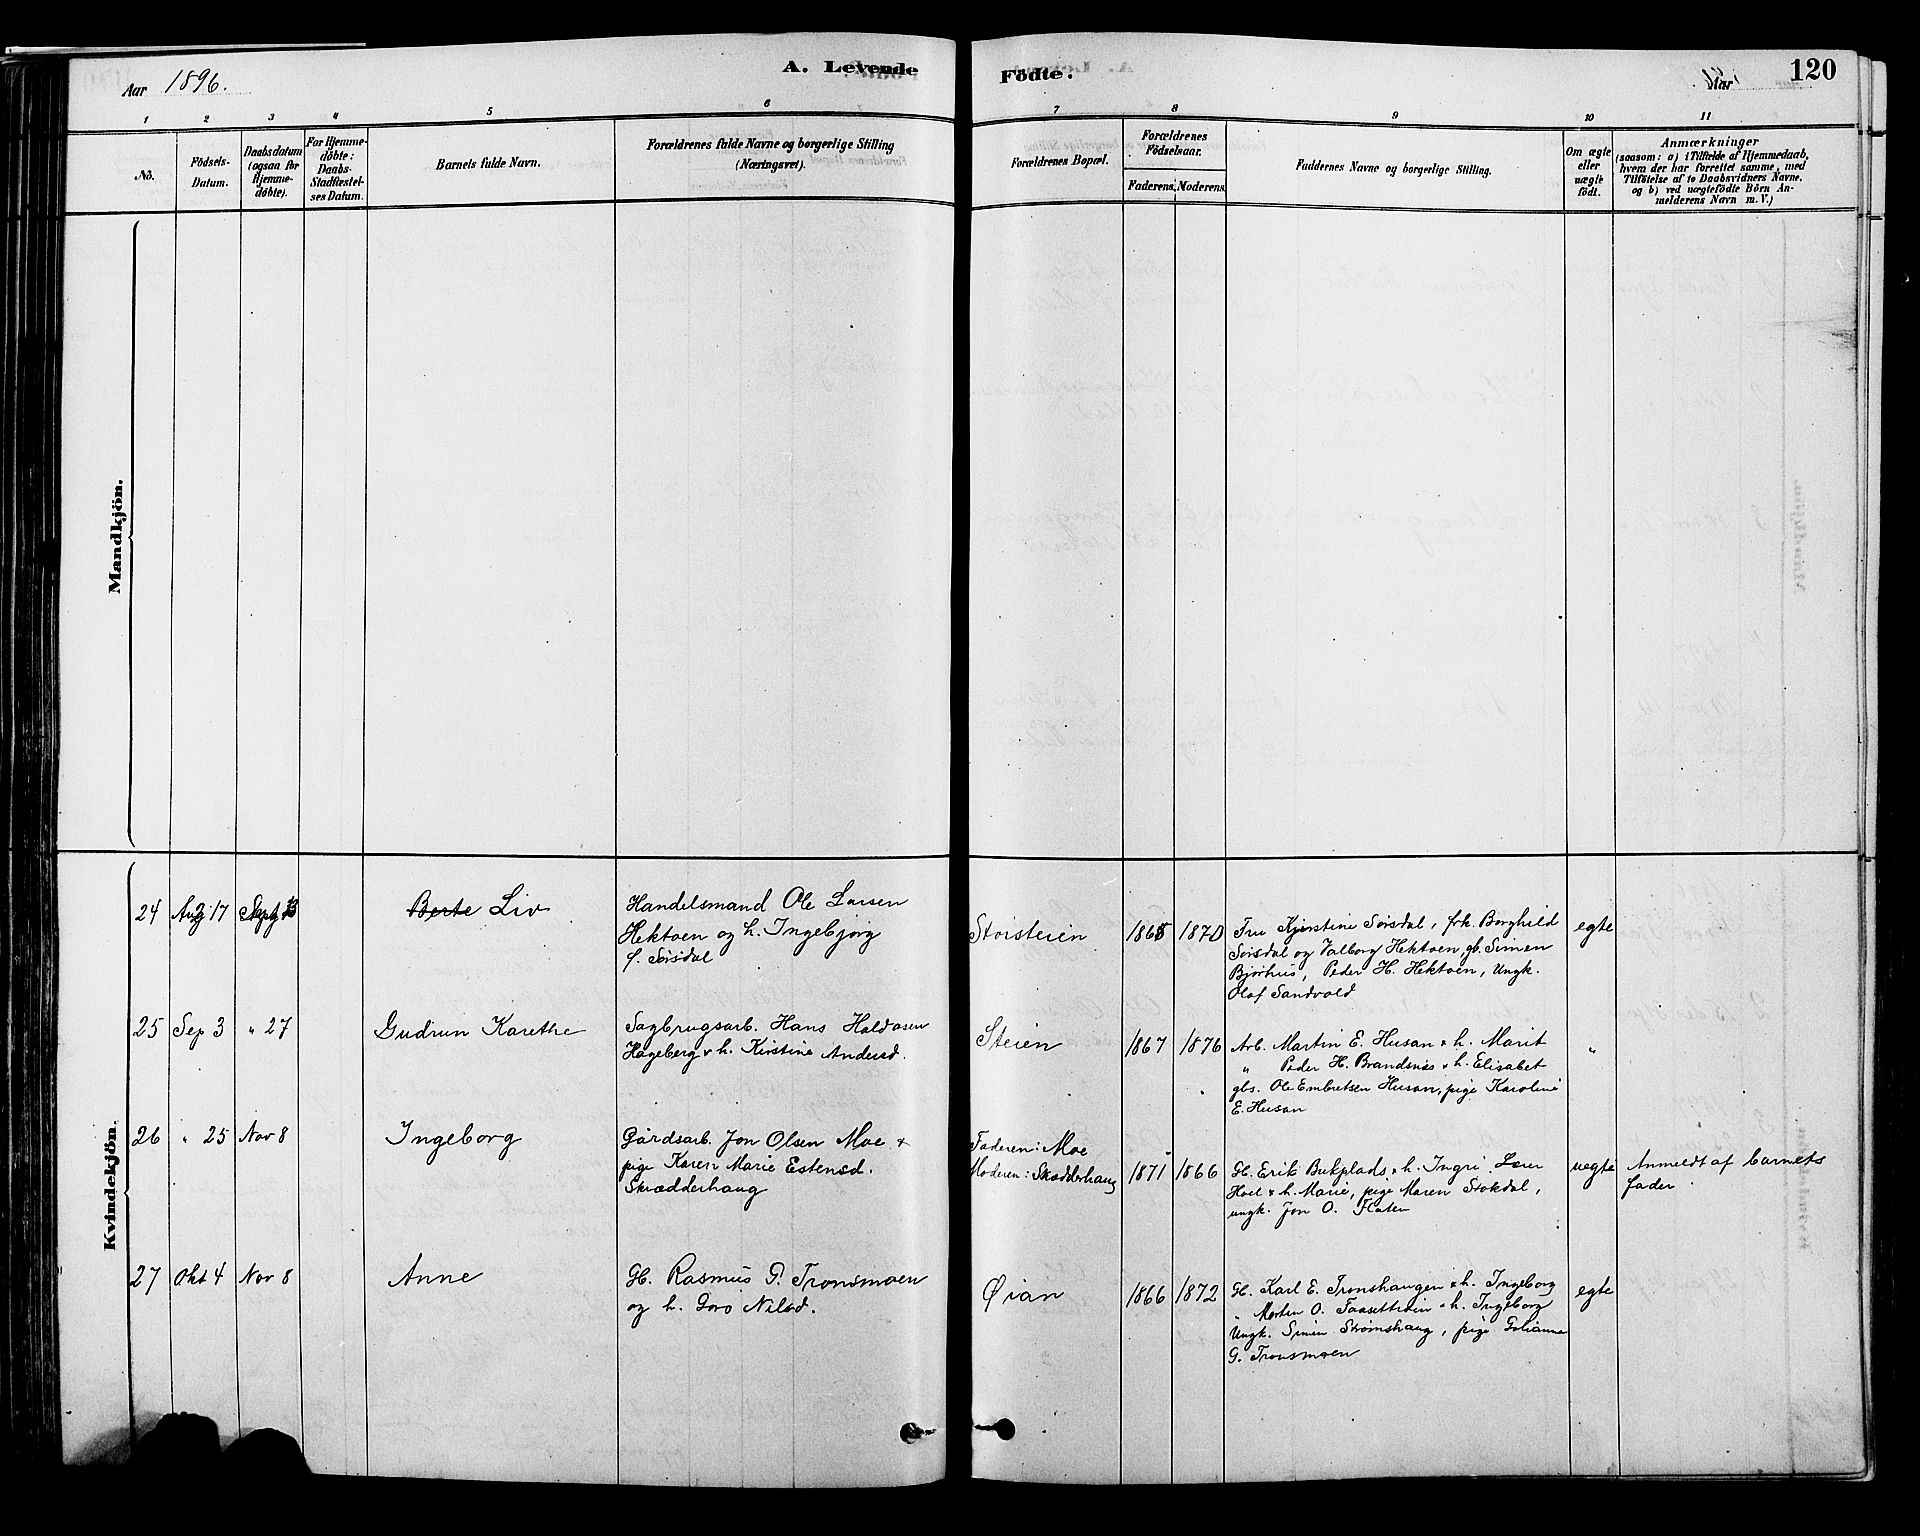 A. Levende
Födte.
120
Aar 1896.
Aar
1
2
3
4
5
6
7
8
9
10
11
No.
Födsels-
Datum.
Daabsdatum
(ogsaa for
Hjemme-
döbte).
For Hjemme-
döbte:
Daabs-
Stadfæstel-
ses Datum.
Barnets fulde Navn.
Forældrenes fulde Navne og borgerlige Stilling
(Næringsvei).
Forældrenes Bopæl.
Forældrenes
Födselsaar.
Faderens.
Moderens.
Faddernes Navne og borgerlige Stilling.
Om ægte
eller
uægte
födt.
Anmærkninger
(saasom: a) i Tilfælde af Hjemmedaab,
hvem der har forrettet samme, med
Tilföielse af to Daabsvidners Navne,
og b) ved uægtefödte Börn An-
melderens Navn m. V.)
Mandkjön.
Kvindekjön.
24 Aug 17 Sept 13
Berte Liv
Handelsmand Ole Larsen
Hektoen og h. Ingebjørg
f. Sørsdal
Storsteien
1865 1870
Fru Kjerstine Sørsdal, frk. Borghild
Sørsdal og Valborg Hektoen, gb. Simen
Bjørhus, Peder H. Hektoen, Ungk.
Olaf Sandvold
egte
25 Sep 3 " 27
Gudrun Karethe
Sagbrugsarb. Hans Haldosen
Hageberg & h. Kirstine Andersd.
Steien
1867 1876
Arb. Martin E. Husan & h. Marit
" Peder H. Brandsnes & h. Elisabet
gbs. Ole Embretsen Husan, pige Karoline
E. Husan
"
26 " 25 Nov 8
Ingeborg
Gårdsarb. Jon Olsen Moe &
pige Karen Marie Estensd.
Skrædderhaug
Faderen: Moe
Moderen: Skrædderhaug
1871 1866
Gb. Erik Bukplads & h. Ingri
Hoel & h. Marie, pige Maren Stokdal,
ungk. Jon O. Floten
uegte
Anmeldt af barnets
fader.
27 Okt 4 Nov 8
Anne
Gb. Rasmus P. Tronsmoen
og h. Goro Nilsd.
Øian
1866 1872
Gb. Karl E. Tronshaugen & h. Ingeborg
" Morten O. Faasetteien & h. Ingeborg
Ungk. Simen Strømshaug, pige Golianne
G. Tronsmoen
egte